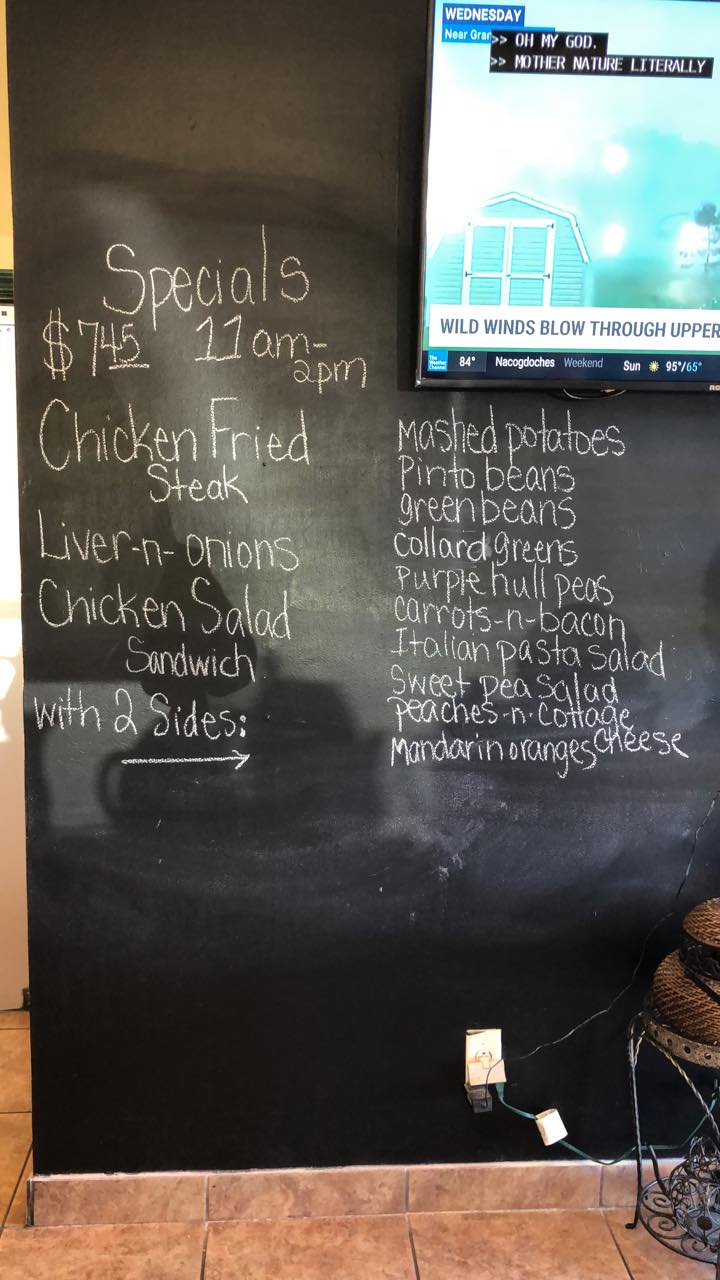 WEDNESDAY
Near Gran
>> OH MY GOD.
>> MOTHER NATURE LITERALLY
WILD WINDS BLOW THROUGH UPPER
The Weather Channel 84° Nacogdoches Weekend Sun 95°/65°
Specials
$7.45 11am-
2pm
Chicken Fried
Steak
Liver-n-onions
Chicken Salad
Sandwich
with 2 Sides:
Mashed potatoes
Pinto beans
green beans
Collard greens
Purple hull peas
carrots-n-bacon
Italian pasta salad
Sweet pea salad
peaches-n-cottage
cheese
Mandarin oranges